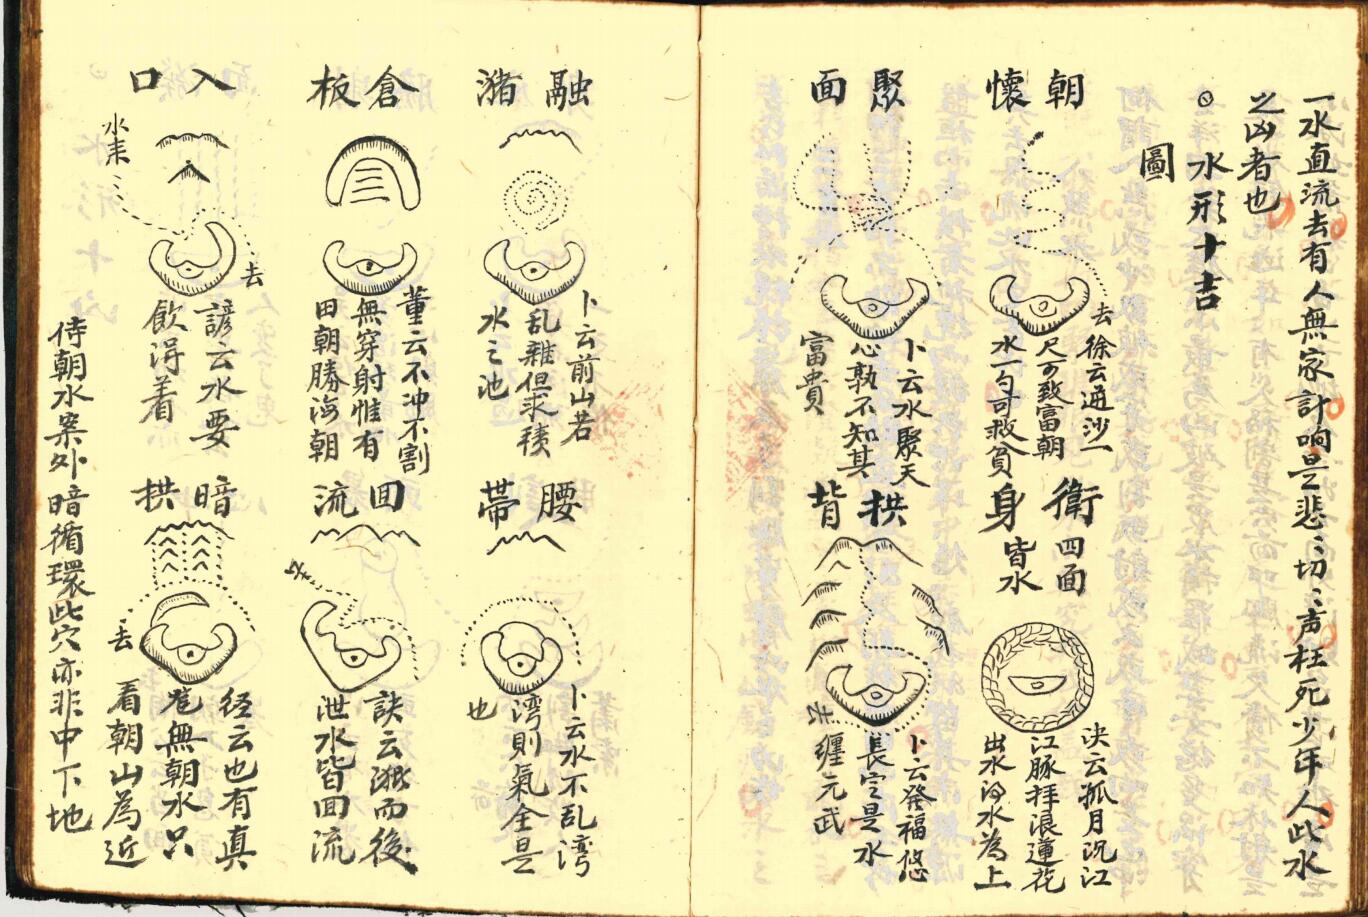 一水直流去有人無家計响是悲〻切〻声枉死少年人此水
之凶者也
○水形十吉
圖
朝懷
去
徐云通沙一
尺可致富朝
水一勺可救貧
衛身
四面
皆水
决云孤月沉江
江豚拜浪蓮花
出水的水為上
聚面
卜云水聚天
心孰不知其
富貴
拱背
去
卜云發福悠
長定是水
纏元武
融瀦
卜云前山若
乱雜但求積
水之池
腰帶
卜云水不乱湾
湾則氣全是
也
倉板
董云不冲不割
無穿射惟有
田朝勝海朝
回流
訣云潴而後
泄水皆回流
入口
水来
去
諺云水要
飲淂着
暗拱
去
径云也有真
龍無朝水只
看朝山為近
侍朝水案外暗循環此穴亦非中下地